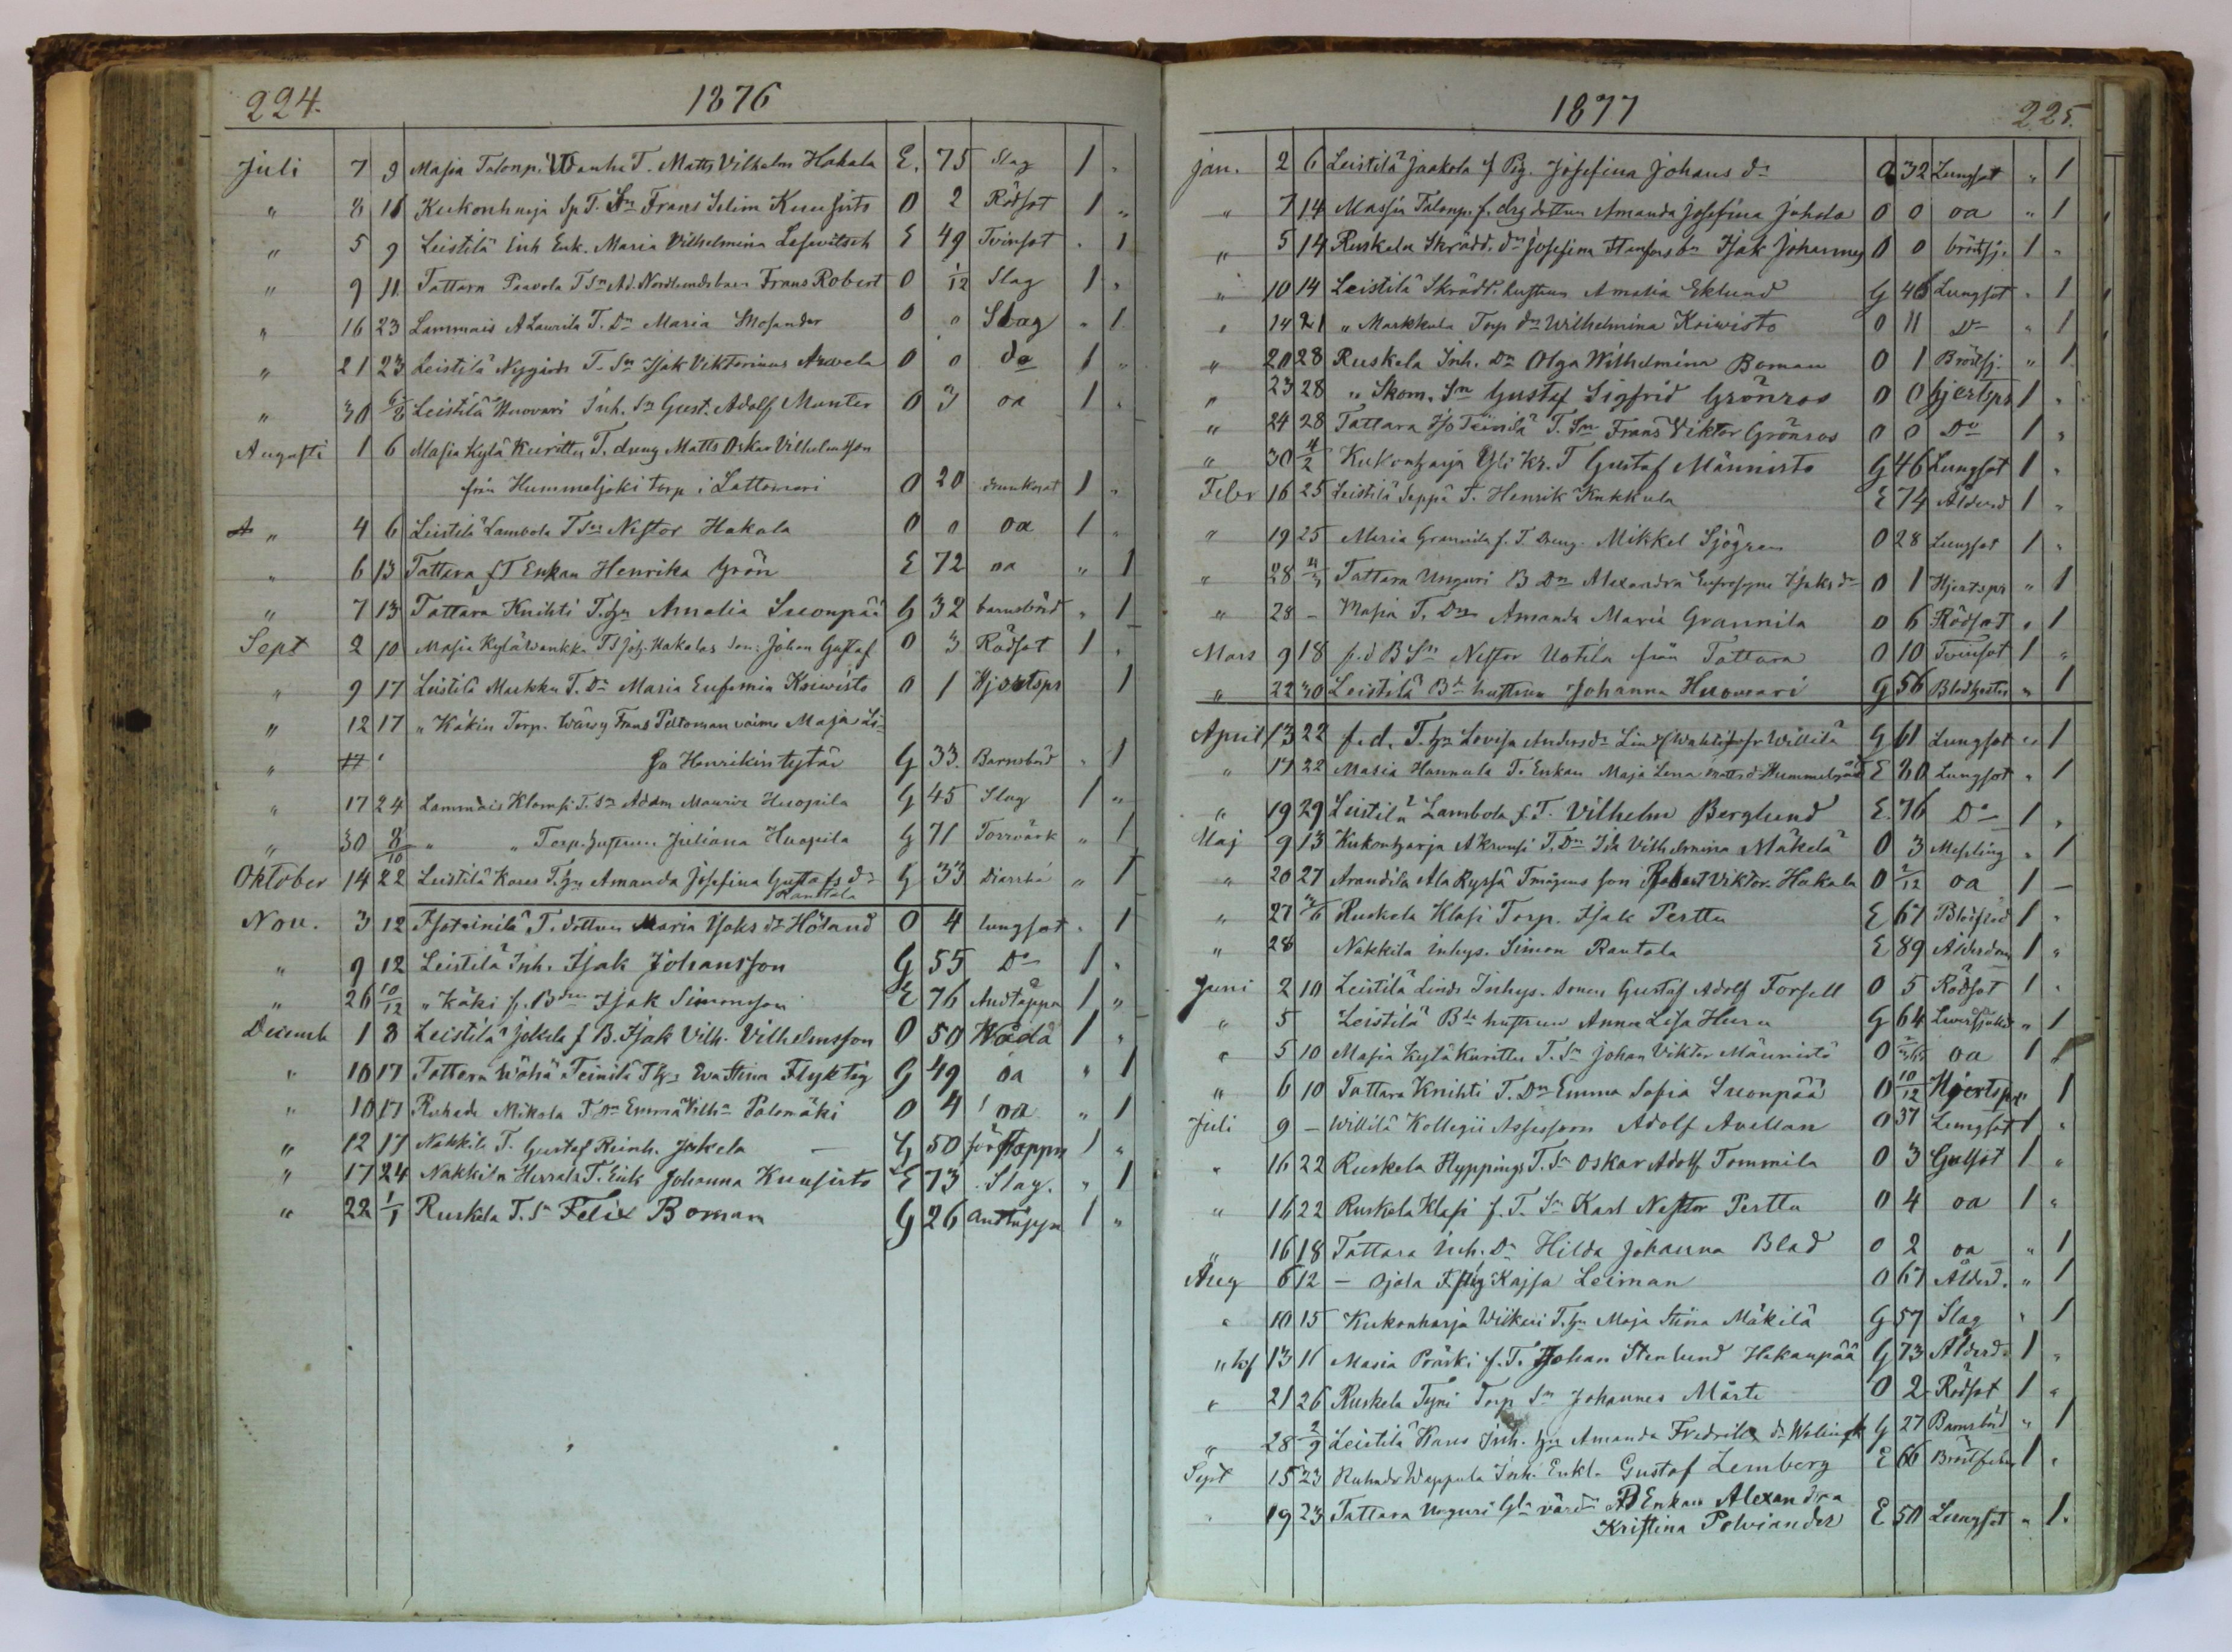 224. 1876
Juli 7 9 Masia Talonp. Wanha T. Matts Vilhelm Hakala E. 75 Slag 1 "
" 8 11 Kukonharja Sp T. Sn Frans Selim Kuusisto O 2 Rödsot 1 "
" 5 9 Leistilä Inh Enk. Maria Vilhelmina E 49 Tvinsot " 1
" 9 11 Tattara Paavola T Sn Ad. Nordlunds barn Frans Robert O 1/12 Slag 1 "
" 16 23 Lammais ALaurila T. Dr Maria Mosander O 0 Slag " 1
" 21 23 Leistilä Nygårds T. Sn Isak Viktorinus Arvela O 0 do 1 "
" 30 6/8 Leistilä Huovari Inh. Sn Gust. Adolf Munter O 3 oa 1 "
Augusti 1 6 Masia Kylä Kurittu T. dräng Matts Oskar Vilhelmsson
från Hummeljoki torp i Lattomeri O 20 drunknat 1 "
" 4 6 Leistilä Lambola T Sn Nestor Hakala O 0 oa 1 "
" 6 13 Tattara f T Enkan Henrika Grön E 72 oa " 1
" 7 13 Tattara Knihti T. hu Amalia Suonpää G 32 barnsbörd " 1
Sept 2 10 Masia Kylä Wankka T Joh. Hakalas son: Johan Gustaf O 3 Rödsot 1 "
" 9 17 Leistilä Markku T. Dr Maria Eufemia Koiwisto O 1 Hjertspr 1
" 12 17 " Käkis Torp. Wäwy Frans Peltoman vaimo Maja Li-
" sa Henrikin tytär G 33. Barnsbörd " 1
" 17 24 Lammais Klomsi T. Sn Adam Mauritz Huopila G 45 Slag 1 "
" 30 8/10 " " Torp. hustrun Juliana Huopila G 71 Torrvärk " 1
Oktober 14 22 Leistilä Kares T. hu Amanda Josefina Gustafs dr G 33 diarrhé " 1
Rauttala
Nov. 3 12 Isotainilä T. dottren Maria Isaks dr Höland O 4 lungsot " 1
" 9 12 Leistilä Inh. Isak Johansson G 55 Do 1 "
" 26 10/12 " Käki f. Bdn Isak Simonsson E 76 Andtäppa 1 "
Decemb 1 8 Leistilä Jakola f B. Isak Vilh. Vilhelmsson O 50 Wåda 1 "
" 10 17 Tattara Wähä Teinilä T hu Eva Stina Flyktig G 49 oa " 1
" 10 17 Ruhade Mikola T Dr Emma Vilha Palomäki O 4 oa " 1
" 12 17 Nakkila T. Gustaf Reinh. Jakola G 50 förstoppn 1 "
" 17 24 Nakkila Herrala T. Enk Johanna Kuusisto E 73 Slag. " 1
" 22 1/1 Ruskela T. Sn Felix Boman G 26 andtäppa 1 "
1877 225.
Jan. 2 6 Leistilä Jaakola f Pig. Josefina Johans dr O 32 Lungsot " 1
" 7 14 Massia Talonp. f. drg dottren Amanda Josefina Juhola O 0 oa " 1
" 5 14 Ruskela Skrädd. dn Josefina Stenfors bn Isak Johannes O 0 bröstsj. 1 "
" 10 14 Leistilä Skrädd. hustrun Amalia Eklund G 46 Lungsot " 1
" 14 21 " Markkula Torp dr Wilhelmina Koiwisto O 11 Do " 1
" 20 28 Ruskela Inh. Dr Olga Wilhelmina Boman O 1 Bröstsj. " 1
" 23 28 " Skom. Sn Gustaf Sigfrid Grönros O 0 hjertspr 1 "
" 24 28 Tattara Iso Teinilä T. Sn Frans Viktor Grönros O 0 Do 1 "
" 30 4/2 Kukonharja Yli Kr. T Gustaf Männisto G 46 Lungsot 1 "
Febr 16 25 Leistilä Seppä T. Henrik Kukkula E 74 Ålderd 1 "
" 19 25 Masia Grannila f. T. Dreng. Mikkel Sjögren O 28 Lungsot 1 "
" 28 4/3 Tattara Unguri B Dr Alexandra Eufrosyne Isaks dr O 1 Hjertspr " 1
" 28 - Masia T. Dr Amanda Maria Grannila O 6 Rödsot " 1
Mars 9 18 f. d B Sn Nestor Uotila från Tattara O 10 Tvinsot 1 "
" 22 30 Leistilä Bde hustrun Johanna Huowari G 56 Blodhostn " 1
April 13 22 f. d. T. hu Lovisa Anders dr Lind Willilä G 61 Lungsot " 1
" 17 22 Masia Hannula T. Enkan Maja Lena Matts dr Hummelgård E 80 Lungsot " 1
" 19 29 Leistilä Lambola f. T. Vilhelm Berglund E. 76 Do 1 "
Maj 9 13 Kukonharja AKrousi T. Dr Ida Vilhelmina Mäkelä O 3 Mesling " 1
" 20 27 Arandila Ala Ryssä Tmågens son Robert Viktor Hakala O 2/12 oa 1 -
" 27 3/6 Ruskela Klasi Torp. Isak Perttu E 67 Blodflod 1 "
" 28 Nakkila inhys. Simon Rautala E 89 Ålderdom 1 "
Juni 2 10 Leistilä Linds Inhys. Sonen Gustaf Adolf Forsell O 5 Rödsot 1 "
" 5 Leistilä Bde hustrun Anna Lisa Huru G 64 Leversjukd " 1
" 5 10 Masia Kylä Kurittu T. Sn Johan Viktor Männistö O oa 1 "
" 6 10 Tattara Knihti T. Dr Emma Sofia Suonpää O 10/12 Hjertspr " 1
Juli 9 - Willilä Kollegii Assessorn Adolf Avellan O 37 Lungsot 1 "
" 16 22 Ruskela Hyppings T. Sn Oskar Adolf Tommila O 3 Gulsot 1 "
" 16 22 Ruskela Klasi f. T. Sn Karl Nestor Perttu O 4 oa 1 "
" 16 18 Tattara Inh. Dr Hilda Johanna Blad O 2 oa " 1
Aug 6 12 - Ojala Kajsa Leiman O 67 Ålderd. " 1
" 10 15 Kukonharja Wiikari T. hu Maja Stina Mäkilä G 57 Slag " 1
" 13 11 Masia Präski f. T. Johan Stenlund Hakanpää G 73 Ålderd. 1 "
" 21 26 Ruskela Tyni Torp Sn Johannes Märti O 2 Rödsot 1 "
" 28 2/9 Leistilä Kares Inh. hu Amanda Fredrika dr G 27 Barnsbörd " 1
Sept 15 23 Ruhade Wappula Inh. Enkl. Gustaf Lemberg E 66 Bröstfeber 1 "
" 19 23 Tattara Unguri Gla värd B Enkan Alexandra
Kristina Polviander E 50 Lungsot " 1.